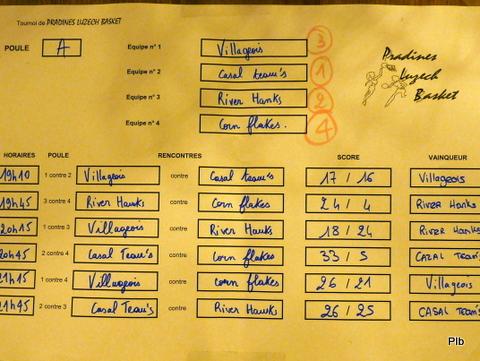 Tournoi de PRADINES LUZECH BASKET
POULE A Equipe n° 1 Villageois 3
Equipe n° 2 Casal team's 1
Equipe n° 3 River Hanks 2
Equipe n° 4 Corn flakes. 4
Pradines
Luzech
Basket
HORAIRES POULE RENCONTRES SCORE VAINQUEUR
19h10 1 contre 2 Villageois contre Casal team's 17 / 16 Villageois
19h45 3 contre 4 River Hawks contre Corn flakes 24 / 4 River Hanks
20h15 1 contre 3 Villageois contre River Hawks 18 / 24 River Hawks
20h45 2 contre 4 Casal Team's contre Corn flakes 33 / 5 CAZAL TEAM'S
21h15 1 contre 4 Villageois contre corn flakes 26 / 21 Villageois
21h45 2 contre 3 Casal Team's contre River Hawks 26 / 25 CASAL TEAM'S
Plb